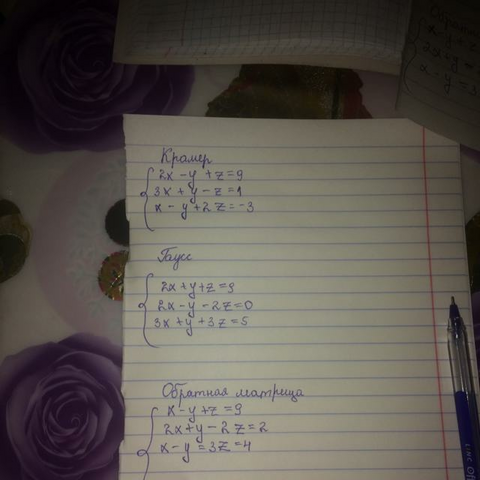 Крамер
2x - y + z = 9
3x + y - z = 1
x - y + 2z = -3
Гаусс
2x + y + z = 9
2x - y - 2z = 0
3x + y + 3z = 5
Обратная матрица
x - y + z = 9
2x + y - 2z = 2
x - y = 3z = 4